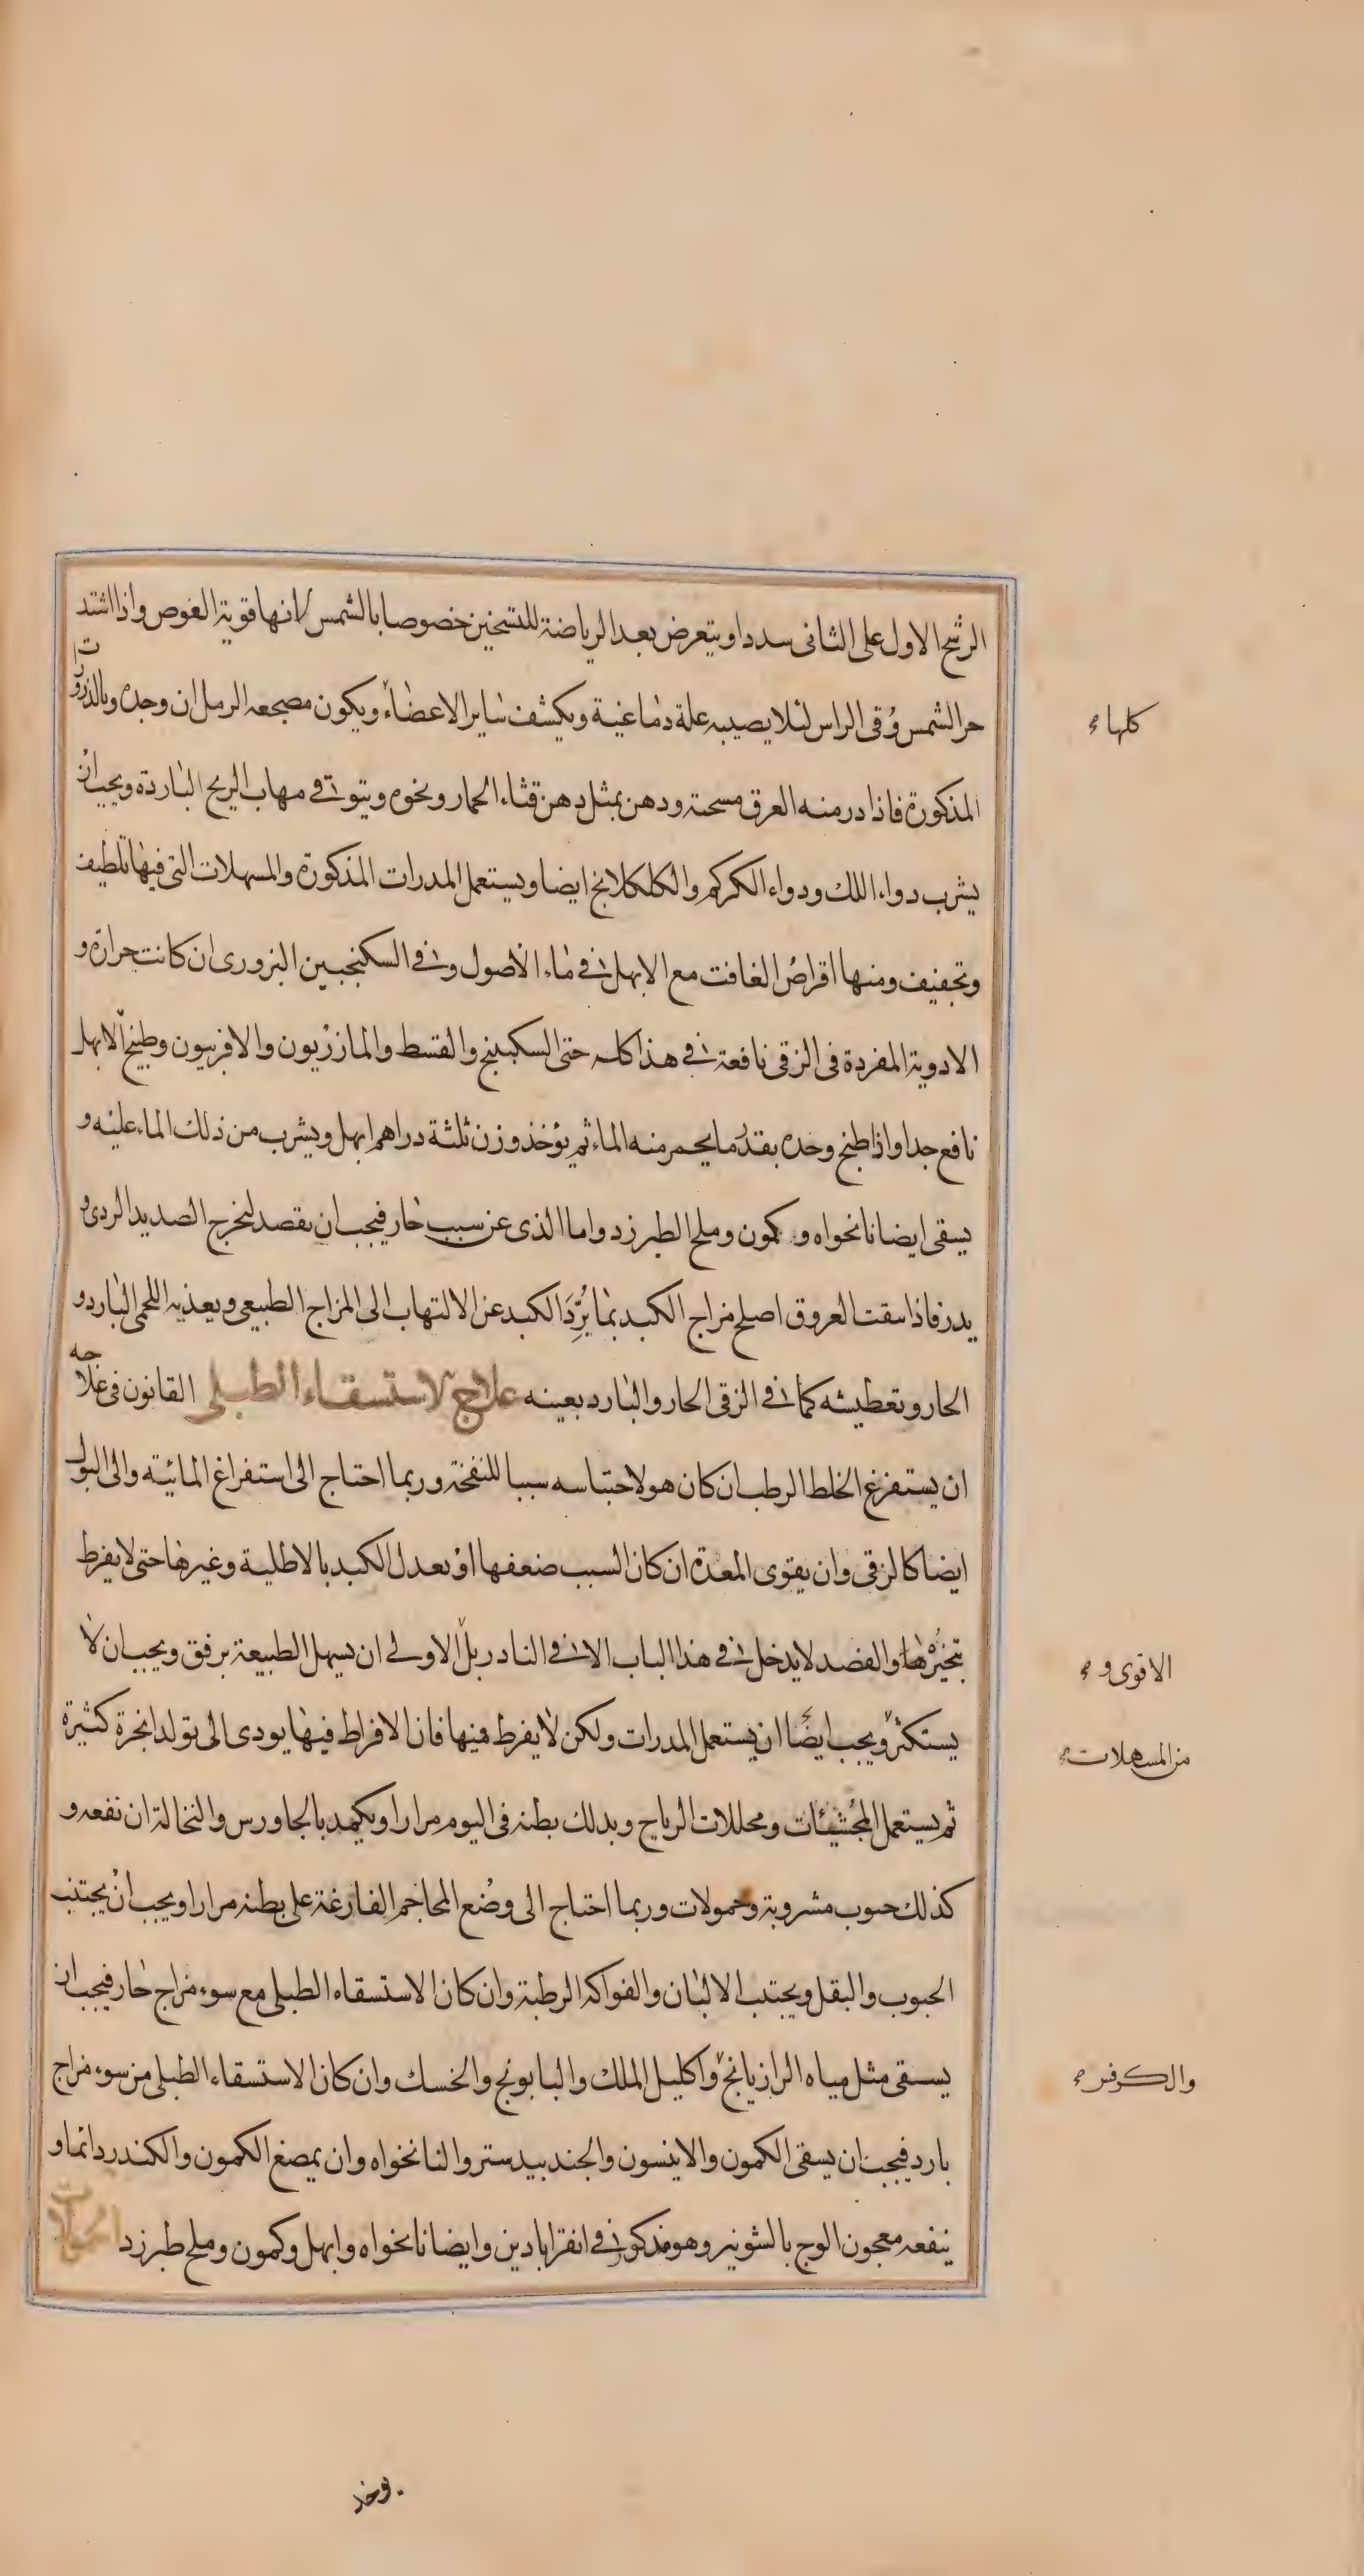 الرشح الاول على الثانى سددا ويتعرض بعد الرياضة للتسخين خصوصا بالشمس لانها قوية الغوص واذا اشتد
حر الشمس وُقى الراس لئلا يصيبه علة دماغية ويكشف ساير الاعضاء ويكون مضجعه الرمل ان وجده وبالذرورات
كلها
المذكورة فاذا در منه العرق مسحته ودهن بمثل دهن قثاء الحمار ونحوه ويتوقى مهاب الريح الباردة ويجب ان
يشرب دواء اللك ودواء الكركم والكلكلانج ايضا ويستعمل المدرات المذكورة والمسهلات التى فيها تلطيف
وتجفيف ومنها اقراص الغافت مع الابهل فى ماء الاصول وفى السكنجبين البزورى ان كانت حرارة و
الادوية المفردة فى الزقى نافعة فى هذا كله حتى السكبينج والقسط والمازريون والافربيون وطبيخ الابهل
نافع جدا واذا طبخ وحده بقدر ما يحمر منه الماء ثم يؤخذ وزن ثلثة دراهم ابهل ويشرب من ذلك الماء عليه و
يسقى ايضا نانخواه وكمون وملح الطبرزد واما الذى عن سبب حار فيجب ان يفصد ليخرج الصديد الردى و
يدر فاذا نقت العروق اصلح مزاج الكبد بما يُبرِّدَ الكبد عن الالتهاب الى المزاج الطبيعى ويغذيه اللحمى البارد و
الحار وتعطيشه كما فى الزقى الحار والبارد بعينه علاج الاستسقاء الطبلى القانون فى علاجه
ان يستفرغ الخلط الرطب ان كان هو لاحتباسه سببا للنفخة وربما احتاج الى استفراغ المائية والى البول
ايضا كالزقى وان يقوى المعدة ان كان السبب ضعفها او يعدل الكبد بالاطلية وغيرها حتى لا يفرط
تبخيرها والفصد لا يدخل فى هذا الباب الا فى النادر بل الاولى ان يسهل الطبيعة برفق ويجب ان لا
الاقوى و
يستكثر ويجب ايضا ان يستعمل المدرات ولكن لا يفرط فيها فان الافراط فيها يودى الى تولد ابخرة كثيرة
من المسهلات
ثم يستعمل المجشيئات ومحللات الرياح ويدلك بطنه فى اليوم مرارا ويكمد بالجاورس والنخالة ان نفعه و
كذلك حبوب مشروبة وحمولات وربما احتاج الى وضع المحاجم الفارغة على بطنه مرارا ويجب ان يجتنب
الحبوب والبقل ويجتنب الالبان والفواكه الرطبة وان كان الاستسقاء الطبلى مع سوء مزاج حار فيجب ان
يسقى مثل مياه الرازيانج واكليل الملك والبابونج والخسك وان كان الاستسقاء الطبلى من سوء مزاج
والكرفس
بارد فيجب ان يسقى الكمون والانيسون والجندبيدستر والنانخواه وان يمضغ الكمون والكندر دائما و
ينفعه معجون الوج بالشونيز وهو مذكور فى اقرابادين وايضا نانخواه وابهل وكمون وملح طبرزد الحمولات
وخذ